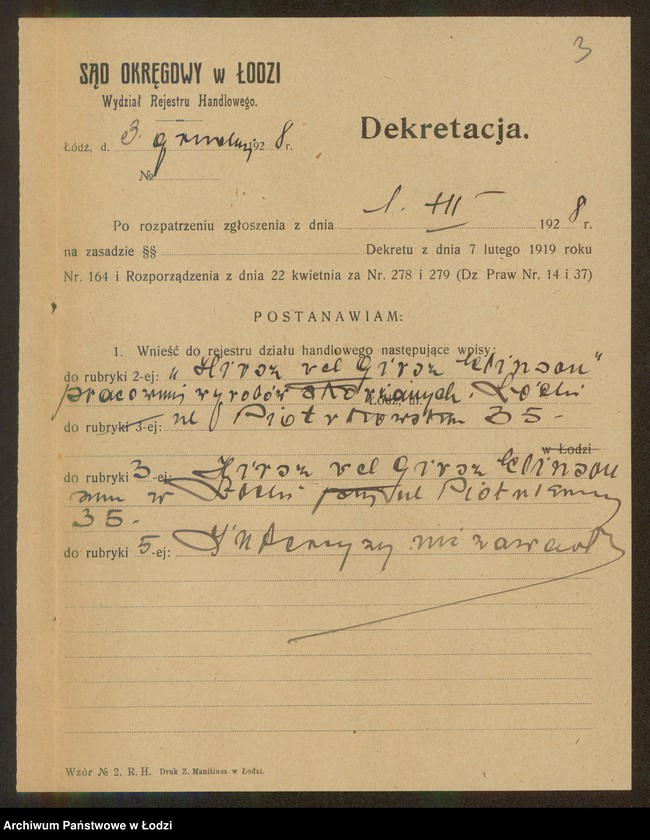 3
SĄD OKRĘGOWY w ŁODZI
Wydział Rejestru Handlowego.
Dekretacja.
Łódź, d. 3. grudnia 1928 r.
№
Po rozpatrzeniu zgłoszenia z dnia 1. XII 1928 r.
na zasadzie §§ Dekretu z dnia 7 lutego 1919 roku
Nr. 164 i Rozporządzenia z dnia 22 kwietnia za Nr. 278 i 279 (Dz Praw Nr. 14 i 37)
POSTANAWIAM:
1. Wnieść do rejestru działu handlowego następujące wpisy:
do rubryki 2-ej: „Hirsz vel Girsz
pracownia wyrobów skórzanych. Łódź
Łódź, ul.
do rubryki 3-ej: ul Piotrkowska 35-
w Łodzi
do rubryki 3-ej: Hirsz vel Girsz
zam w Łodzi ul Piotrkowska
35-
do rubryki 5-ej: Intercyzy nie zawarł
Wzór № 2. R. H. Druk Z. Manitiusa w Łodzi.
Archiwum Państwowe w Łodzi